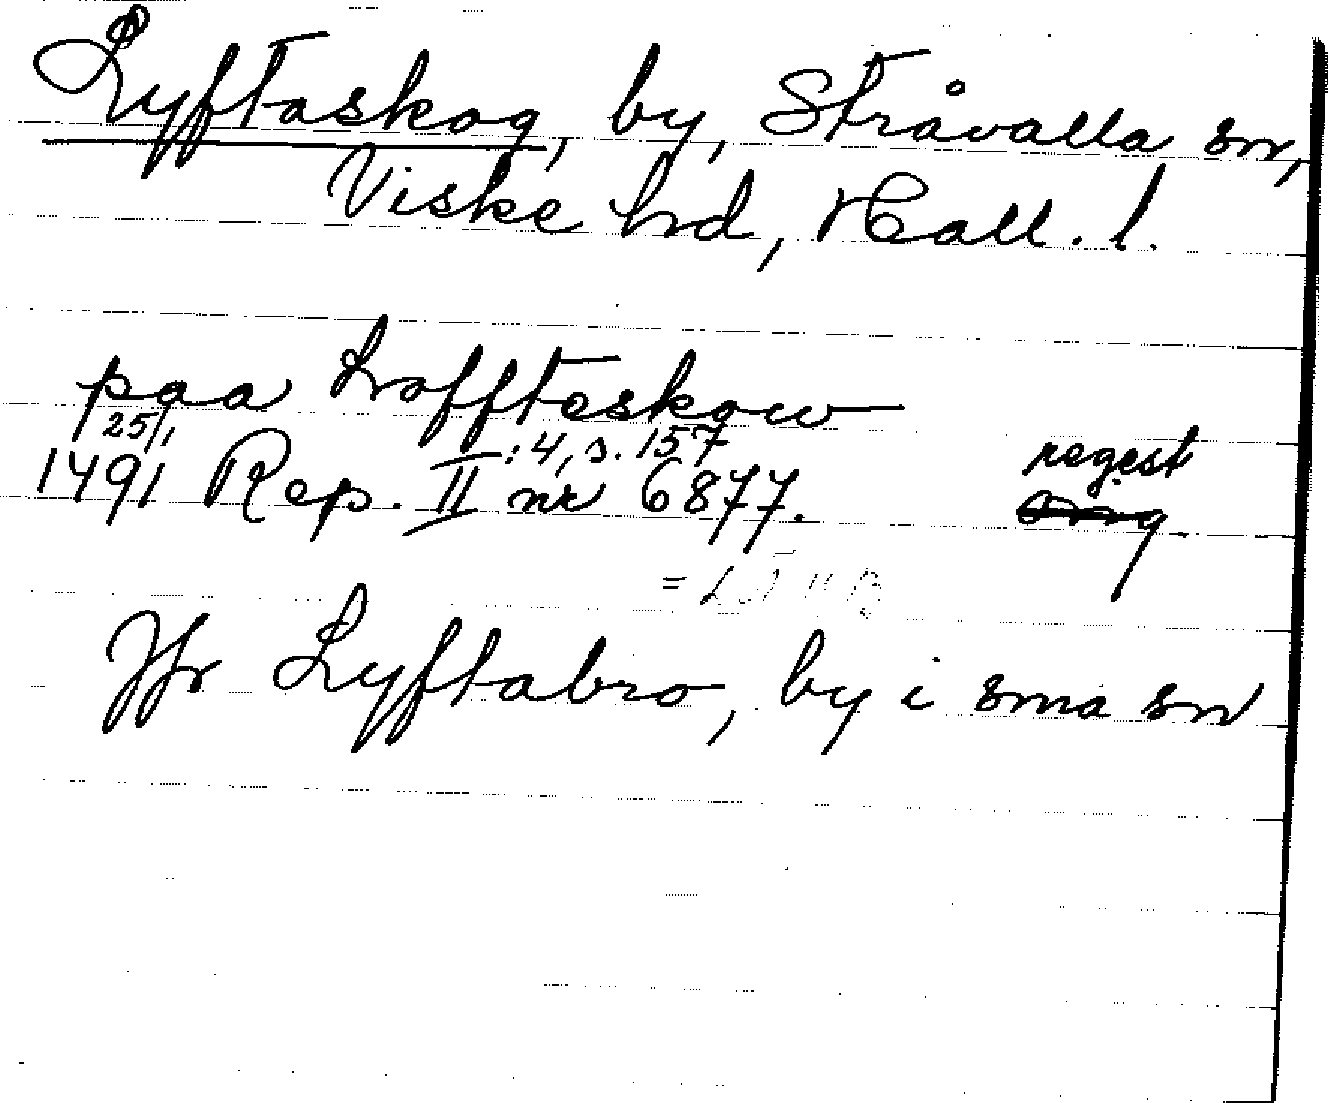 Lyftaskog, by, Stråvalla sn,
Viske hd, Hall. l.
paa Loffteskow
25/1
1491 Rep. II :4, s. 157 nr 6877.
regest
Jfr Lyftabro, by i sma sn